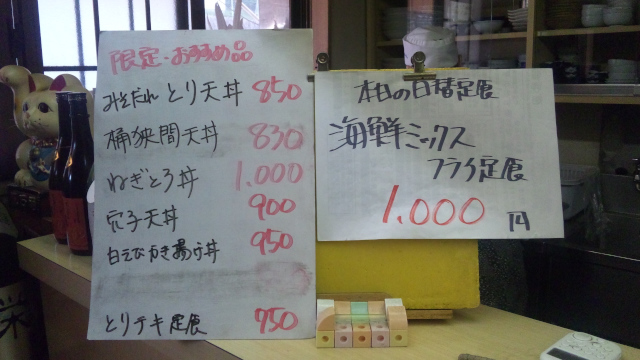 限定・おすすめ品
みそだれ とり天丼 850
桶狭間天丼 830
ねぎとろ丼 1,000
穴子天丼 900
白えびかき揚げ丼 950
とりテキ定食 750
本日の日替定食
海鮮ミックス
フライ定食
1,000円